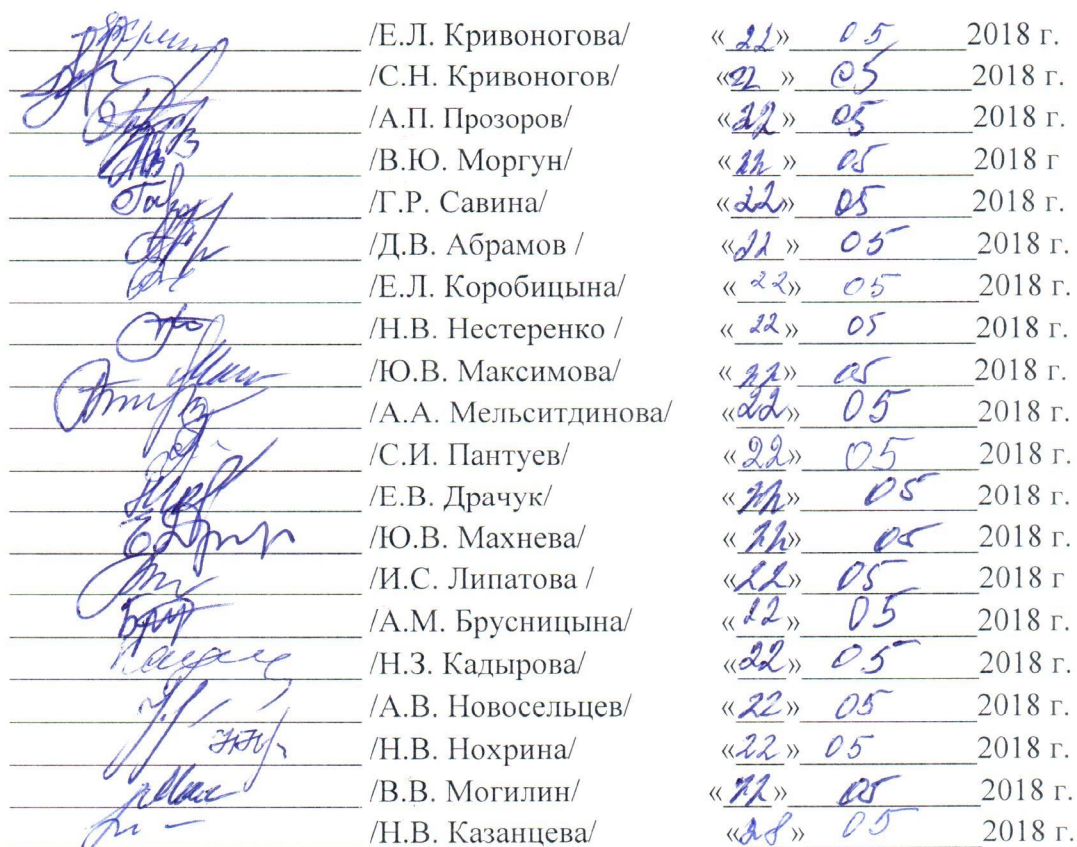 /Е.Л. Кривоногова/ «22» 05 2018 г.
/С.Н. Кривоногов/ «22» 05 2018 г.
/А.П. Прозоров/ «22» 05 2018 г.
/В.Ю. Моргун/ «22» 05 2018 г
/Г.Р. Савина/ «22» 05 2018 г.
/Д.В. Абрамов / «22» 05 2018 г.
/Е.Л. Коробицына/ «22» 05 2018 г.
/Н.В. Нестеренко / «22» 05 2018 г.
/Ю.В. Максимова/ «22» 05 2018 г.
/А.А. Мельситдинова/ «22» 05 2018 г.
/С.И. Пантуев/ «22» 05 2018 г.
/Е.В. Драчук/ «22» 05 2018 г.
/Ю.В. Махнева/ «22» 05 2018 г.
/И.С. Липатова / «22» 05 2018 г
/А.М. Брусницына/ «22» 05 2018 г.
/Н.З. Кадырова/ «22» 05 2018 г.
/А.В. Новосельцев/ «22» 05 2018 г.
/Н.В. Нохрина/ «22» 05 2018 г.
/В.В. Могилин/ «22» 05 2018 г.
/Н.В. Казанцева/ «28» 05 2018 г.